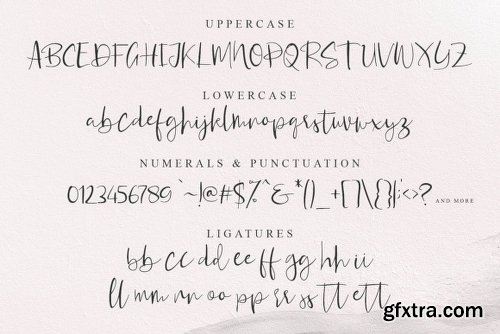 UPPERCASE
ABCDEFGHIJKLMNOPQRSTUVWXYZ
LOWERCASE
abcdefghijklmnopqrstuvwxyz
NUMERALS & PUNCTUATION
0123456789 `~!@#$%^&*()_+[]\{}|;<>? AND MORE
LIGATURES
bb cc dd ee ff gg hh ii
ll mm nn oo pp rr ss tt ett
gfxtra.com